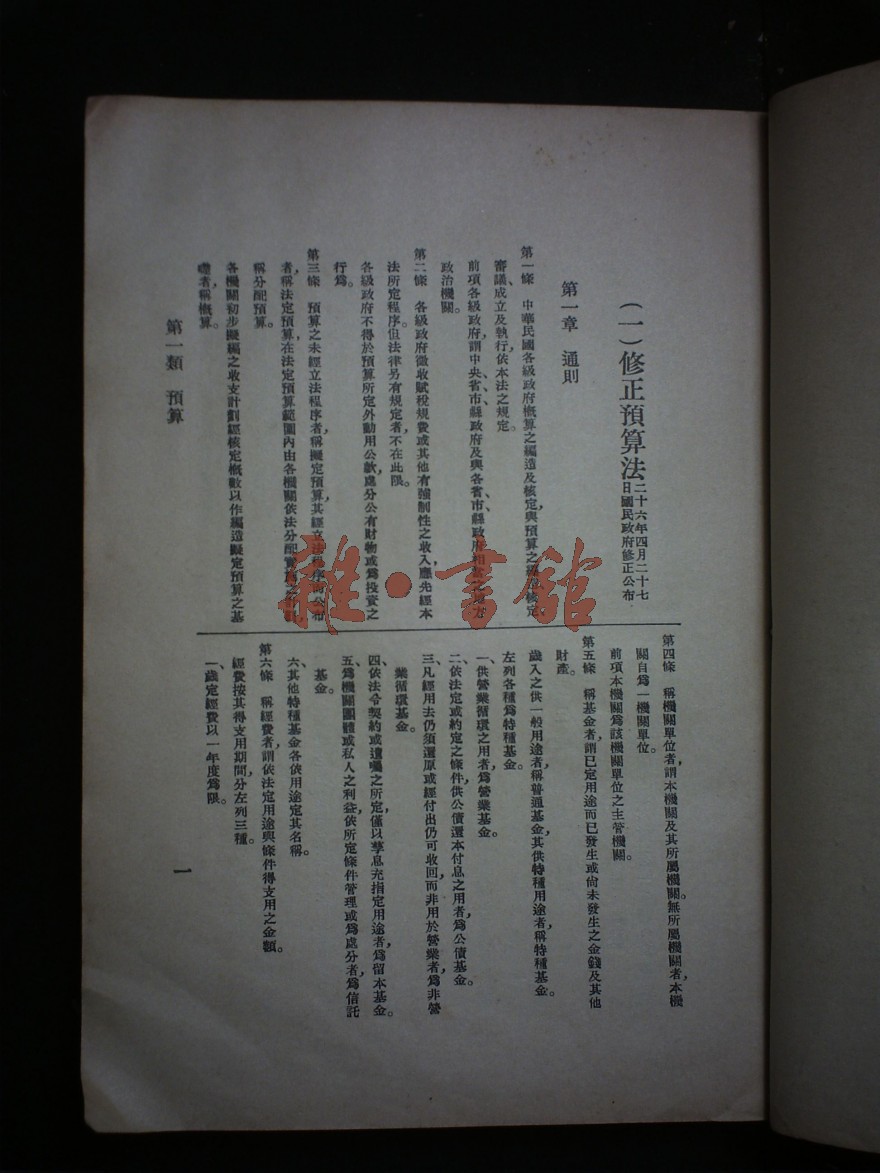 （一）修正預算法 二十六年四月二十七
日國民政府修正公布
第一章　通則
第一條　中華民國各級政府概算之編造及核定，與預算之
審議、成立及執行，依本法之規定。
前項各級政府，謂中央、省、市、縣政府及與各省、市、縣政府
政治機關。
第二條　各級政府徵收賦稅規費或其他有強制性之收入，應先經本
法所定程序。但法律另有規定者，不在此限。
各級政府不得於預算所定外動用公款，處分公有財物或爲投資之
行爲。
第三條　預算之未經立法程序者，稱擬定預算，其經立法程序而公布
者，稱法定預算，在法定預算範圍內由各機關依法分配實施之計劃，
稱分配預算。
各機關初步擬編之收支計劃經核定概數以作編造擬定預算之基
礎者，稱概算。
第四條　稱機關單位者，謂本機關及其所屬機關。無所屬機關者，本機
關自爲一機關單位。
前項本機關爲該機關單位之主管機關。
第五條　稱基金者，謂已定用途而已發生或尙未發生之金錢及其他
財產。
歲入之供一般用途者，稱普通基金，其供特種用途者，稱特種基金。
左列各種爲特種基金。
一、供營業循環之用者，爲營業基金。
二、依法定或約定之條件，供公債還本付息之用者，爲公債基金。
三、凡經用去仍須還原或經付出仍可收回，而非用於營業者，爲非營
業循環基金。
四、依法令契約或遺囑之所定，僅以孳息充指定用途者，爲留本基金。
五、爲機關團體或私人之利益，依所定條件管理或爲處分者，爲信託
基金。
六、其他特種基金各依用途定其名稱。
第六條　稱經費者，謂依法定用途與條件得支用之金額。
經費按其得支用期間分左列三種。
一、歲定經費以一年度爲限。
第一類　預算
一
雜·書館